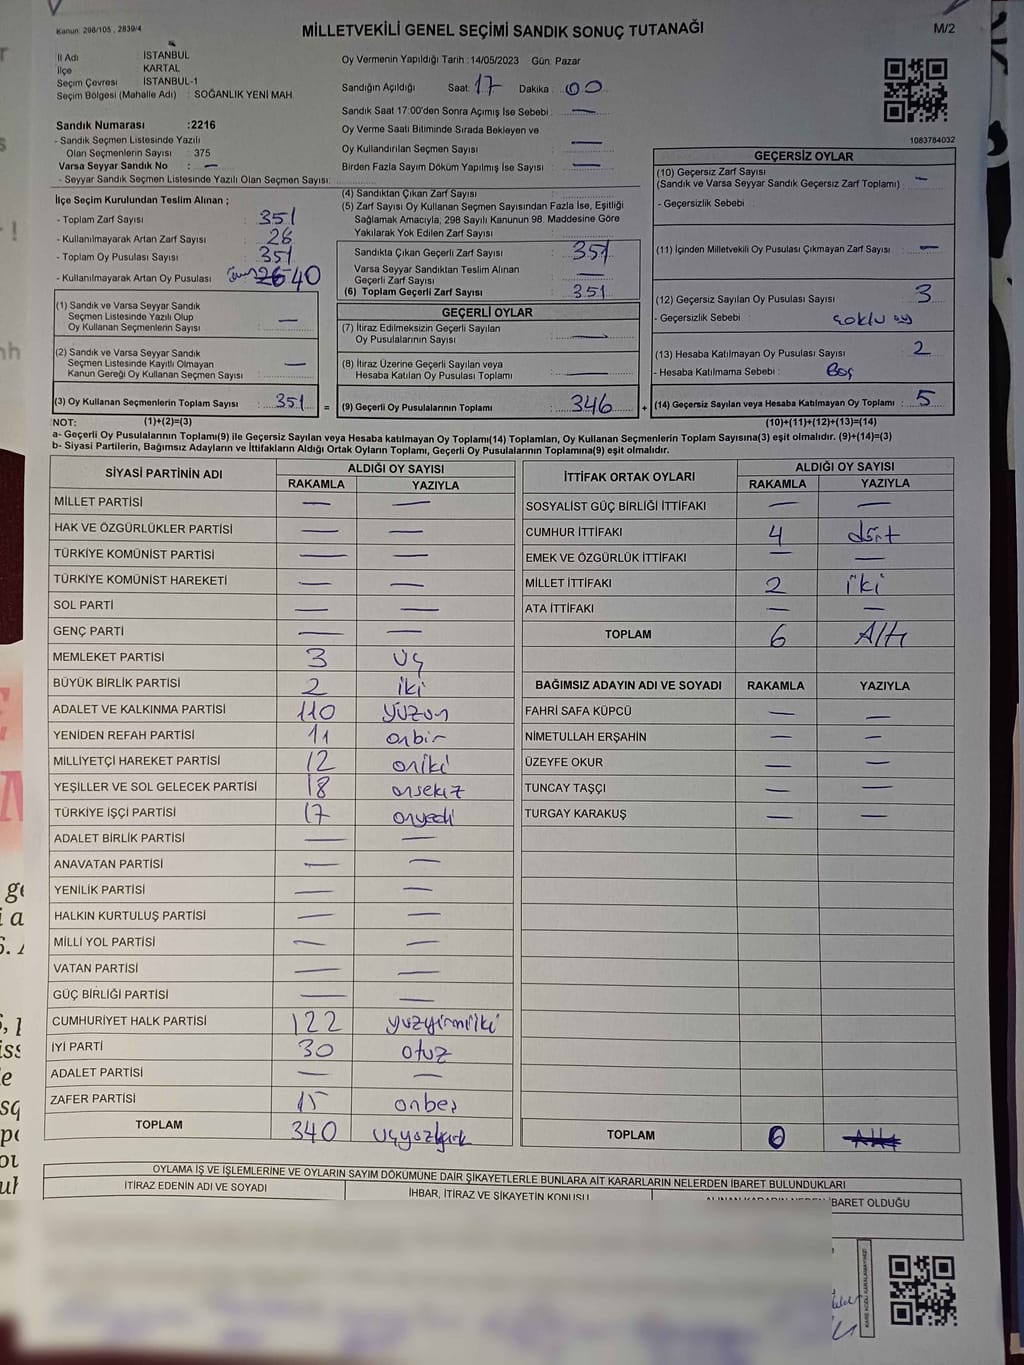 Kanun: 298/105 , 2839/4
MİLLETVEKİLİ GENEL SEÇİMİ SANDIK SONUÇ TUTANAĞI
M/2
İl Adı İSTANBUL
İlçe KARTAL
Seçim Çevresi İSTANBUL-1
Seçim Bölgesi (Mahalle Adı) : SOĞANLIK YENİ MAH.
Sandık Numarası :2216
- Sandık Seçmen Listesinde Yazılı
Olan Seçmenlerin Sayısı : 375
Varsa Seyyar Sandık No : —
- Seyyar Sandık Seçmen Listesinde Yazılı Olan Seçmen Sayısı:
Oy Vermenin Yapıldığı Tarih :14/05/2023 Gün: Pazar
Sandığın Açıldığı Saat: 17 Dakika : 00
Sandık Saat 17:00'den Sonra Açımış İse Sebebi : —
Oy Verme Saati Bitiminde Sırada Bekleyen ve
Oy Kullandırılan Seçmen Sayısı : —
Birden Fazla Sayım Döküm Yapılmış İse Sayısı : —
1083784032
İlçe Seçim Kurulundan Teslim Alınan ;
- Toplam Zarf Sayısı : 351
- Kullanılmayarak Artan Zarf Sayısı : 26
- Toplam Oy Pusulası Sayısı : 351
- Kullanılmayarak Artan Oy Pusulası : 26 40
(1) Sandık ve Varsa Seyyar Sandık
Seçmen Listesinde Yazılı Olup
Oy Kullanan Seçmenlerin Sayısı : —
(2) Sandık ve Varsa Seyyar Sandık
Seçmen Listesinde Kayıtlı Olmayan
Kanun Gereği Oy Kullanan Seçmen Sayısı : —
(3) Oy Kullanan Seçmenlerin Toplam Sayısı : 351 =
(4) Sandıktan Çıkan Zarf Sayısı :
(5) Zarf Sayısı Oy Kullanan Seçmen Sayısından Fazla İse, Eşitliği
Sağlamak Amacıyla, 298 Sayılı Kanunun 98. Maddesine Göre
Yakılarak Yok Edilen Zarf Sayısı :
Sandıkta Çıkan Geçerli Zarf Sayısı : 351
Varsa Seyyar Sandıktan Teslim Alınan
Geçerli Zarf Sayısı : —
(6) Toplam Geçerli Zarf Sayısı : 351
GEÇERLİ OYLAR
(7) İtiraz Edilmeksizin Geçerli Sayılan
Oy Pusulasının Sayısı : —
(8) İtiraz Üzerine Geçerli Sayılan veya
Hesaba Katılan Oy Pusulası Toplamı : —
(9) Geçerli Oy Pusulalarının Toplamı : 346 +
GEÇERSİZ OYLAR
(10) Geçersiz Zarf Sayısı
(Sandık ve Varsa Seyyar Sandık Geçersiz Zarf Toplamı) : —
- Geçersizlik Sebebi :
(11) İçinden Milletvekili Oy Pusulası Çıkmayan Zarf Sayısı : —
(12) Geçersiz Sayılan Oy Pusulası Sayısı : 3
- Geçersizlik Sebebi : çoklu oy
(13) Hesaba Katılmayan Oy Pusulası Sayısı : 2
- Hesaba Katılmama Sebebi : Boş
(14) Geçersiz Sayılan veya Hesaba Katılmayan Oy Toplamı : 5
NOT: (1)+(2)=(3) (10)+(11)+(12)+(13)=(14)
a- Geçerli Oy Pusulalarının Toplamı(9) ile Geçersiz Sayılan veya Hesaba katılmayan Oy Toplamı(14) Toplamları, Oy Kullanan Seçmenlerin Toplam Sayısına(3) eşit olmalıdır. (9)+(14)=(3)
b- Siyasi Partilerin, Bağımsız Adayların ve İttifakların Aldığı Ortak Oyların Toplamı, Geçerli Oy Pusulalarının Toplamına(9) eşit olmalıdır.
SİYASİ PARTİNİN ADI ALDIĞI OY SAYISI
RAKAMLA YAZIYLA
MİLLET PARTİSİ — —
HAK VE ÖZGÜRLÜKLER PARTİSİ — —
TÜRKİYE KOMÜNİST PARTİSİ — —
TÜRKİYE KOMÜNİST HAREKETİ — —
SOL PARTİ — —
GENÇ PARTİ — —
MEMLEKET PARTİSİ 3 üç
BÜYÜK BİRLİK PARTİSİ 2 iki
ADALET VE KALKINMA PARTİSİ 110 yüzon
YENİDEN REFAH PARTİSİ 11 onbir
MİLLİYETÇİ HAREKET PARTİSİ 12 oniki
YEŞİLLER VE SOL GELECEK PARTİSİ 18 onsekiz
TÜRKİYE İŞÇİ PARTİSİ 17 onyedi
ADALET BİRLİK PARTİSİ — —
ANAVATAN PARTİSİ — —
YENİLİK PARTİSİ — —
HALKIN KURTULUŞ PARTİSİ — —
MİLLİ YOL PARTİSİ — —
VATAN PARTİSİ — —
GÜÇ BİRLİĞİ PARTİSİ — —
CUMHURİYET HALK PARTİSİ 122 yüzyirmiiki
İYİ PARTİ 30 otuz
ADALET PARTİSİ — —
ZAFER PARTİSİ 15 onbeş
TOPLAM 340 üçyüzkırk
İTTİFAK ORTAK OYLARI ALDIĞI OY SAYISI
RAKAMLA YAZIYLA
SOSYALİST GÜÇ BİRLİĞİ İTTİFAKI — —
CUMHUR İTTİFAKI 4 dört
EMEK VE ÖZGÜRLÜK İTTİFAKI — —
MİLLET İTTİFAKI 2 iki
ATA İTTİFAKI — —
TOPLAM 6 Altı
BAĞIMSIZ ADAYIN ADI VE SOYADI RAKAMLA YAZIYLA
FAHRİ SAFA KÜPCÜ — —
NİMETULLAH ERŞAHİN — —
ÜZEYFE OKUR — —
TUNCAY TAŞÇI — —
TURGAY KARAKUŞ — —
TOPLAM 0 Altı
OYLAMA İŞ VE İŞLEMLERİNE VE OYLARIN SAYIM DÖKÜMÜNE DAİR ŞİKAYETLERLE BUNLARA AİT KARARLARIN NELERDEN İBARET BULUNDUKLARI
İTİRAZ EDENİN ADI VE SOYADI İHBAR, İTİRAZ VE ŞİKAYETİN KONUSU İBARET OLDUĞU